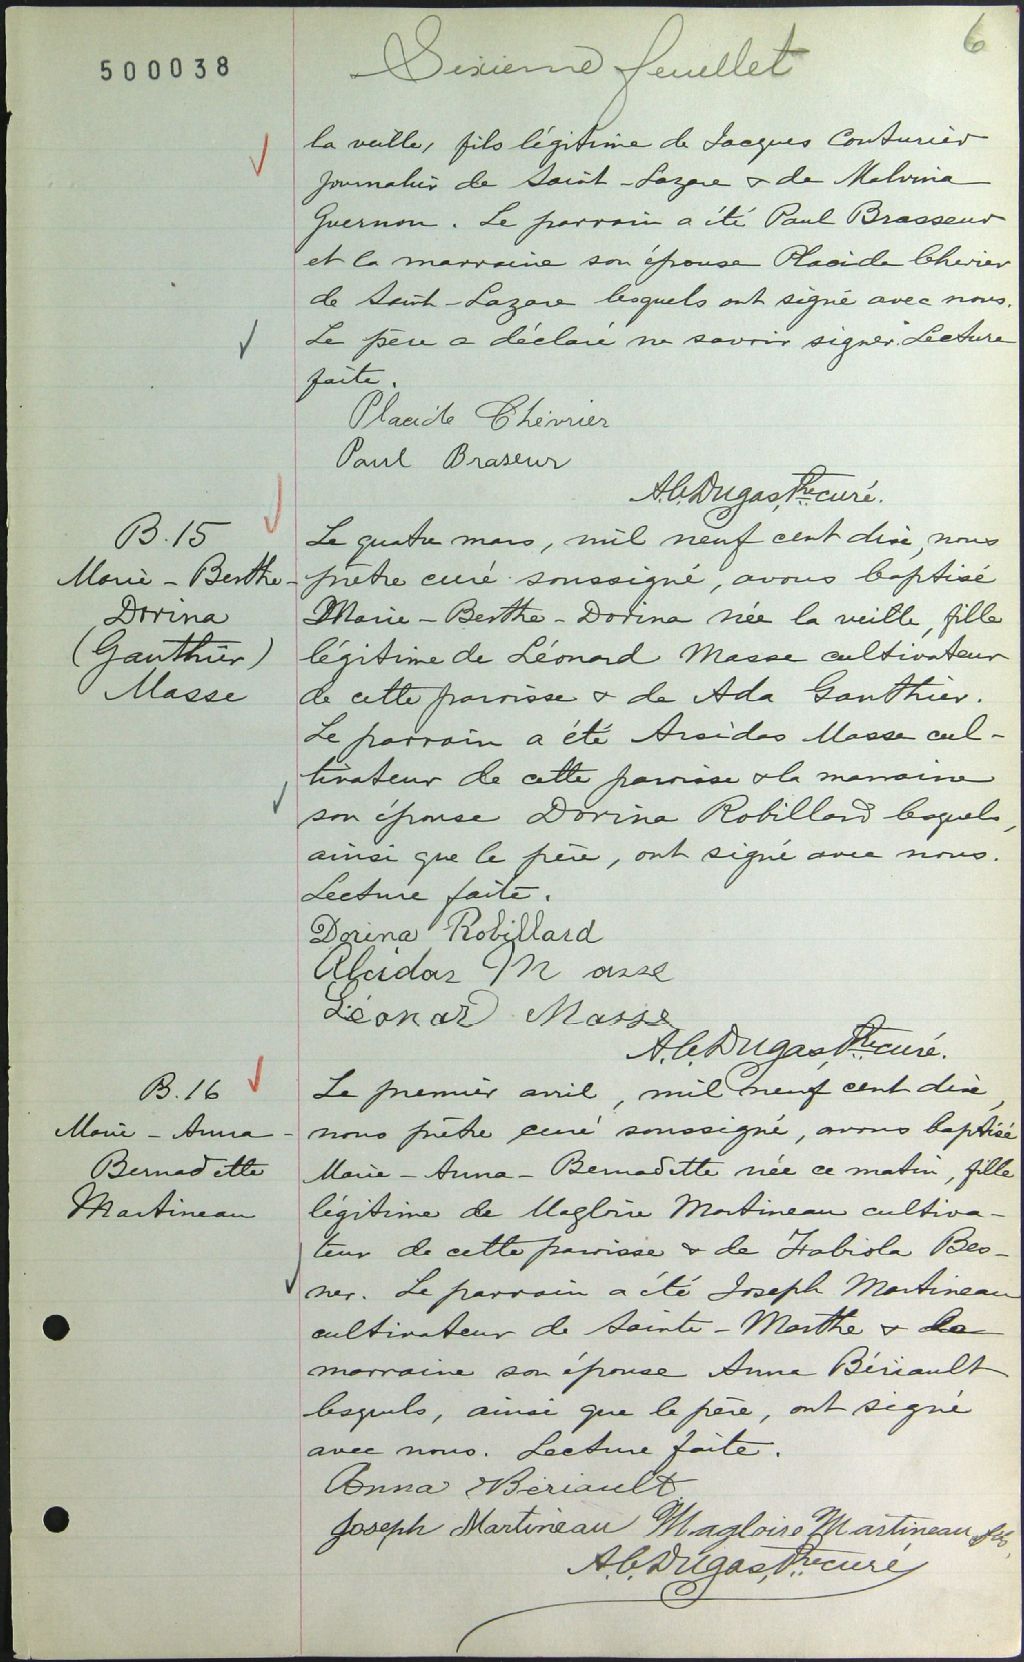 500038
Sixième feuillet
6
la veille, fils légitime de Jacques Couturier
journalier de Saint-Lazare & de Malvina
Guernon. Le parrain a été Paul Brasseur
et la marraine son épouse Placide Chevrier
de Saint-Lazare lesquels ont signé avec nous.
Le père a déclaré ne savoir signer. Lecture
faite.
Placide Chévrier
Paul Braseur
A.C. Dugas, Ptre curé.
B. 15
Marie-Berthe-
Dorina
(Gauthier)
Masse
Le quatre mars, mil neuf cent dix, nous
prêtre curé soussigné, avons baptisé
Marie-Berthe-Dorina née la veille, fille
légitime de Léonard Masse cultivateur
de cette paroisse & de Ada Gauthier.
Le parrain a été Arsidas Masse cul-
tivateur de cette paroisse & la marraine
son épouse Dorina Robillard lesquels,
ainsi que le père, ont signé avec nous.
Lecture faite.
Dorina Robillard
Alcidas Masse
Léonard Masse
A.C. Dugas, Ptre curé.
B. 16
Marie-Anna-
Bernadette
Martineau
Le premier avril, mil neuf cent dix,
nous prêtre curé soussigné, avons baptisé
Marie-Anna-Bernadette née ce matin, fille
légitime de Magloire Martineau cultiva-
teur de cette paroisse & de Fabiola Bes-
ner. Le parrain a été Joseph Martineau
cultivateur de Sainte-Marthe & la
marraine son épouse Anna Bériault
lesquels, ainsi que le père, ont signé
avec nous. Lecture faite.
Anna Bériault
Joseph Martineau Magloire Martineau fils,
A.C. Dugas, Ptre curé